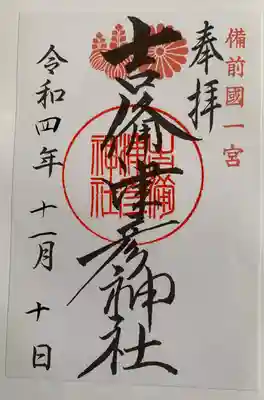 備前國一宮
奉拝
吉備津彦神社
吉備津彦神社
令和四年十一月十日